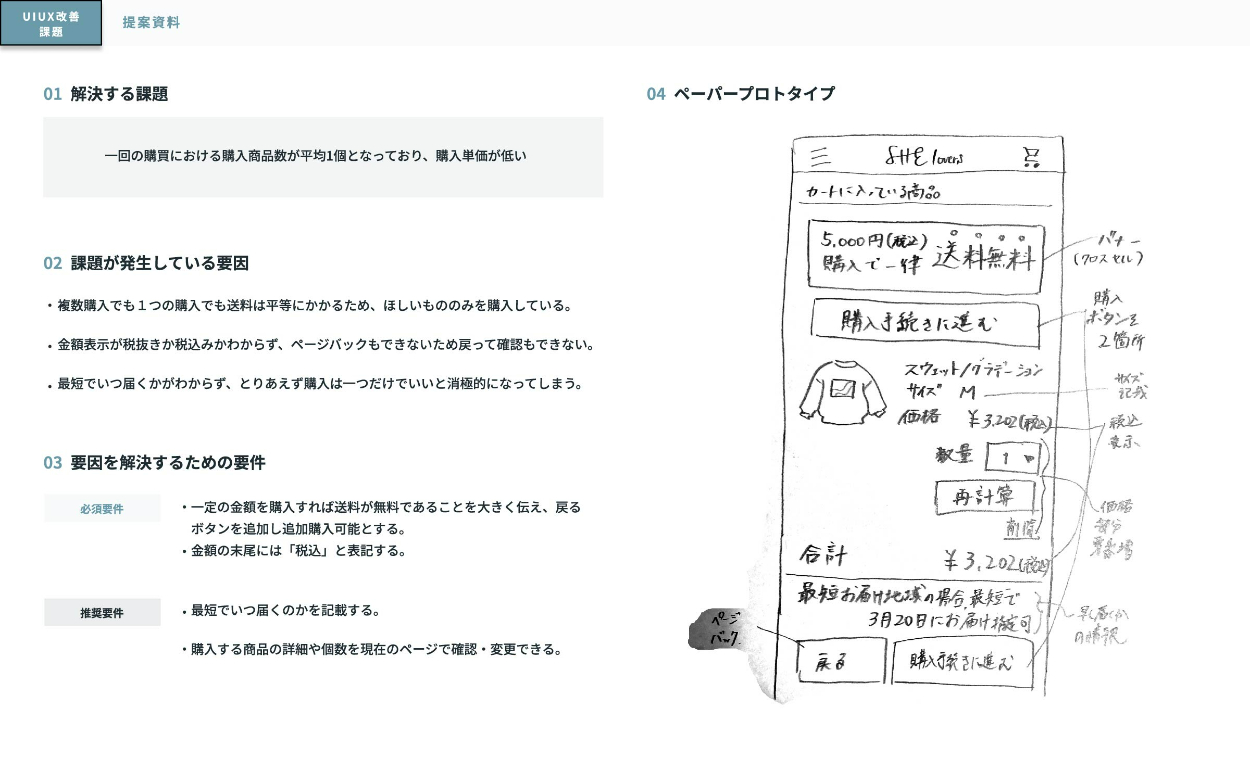 UIUX改善
課題
提案資料
01 解決する課題
一回の購買における購入商品数が平均1個となっており、購入単価が低い
02 課題が発生している要因
・複数購入でも１つの購入でも送料は平等にかかるため、ほしいもののみを購入している。
・金額表示が税抜きか税込みかわからず、ページバックもできないため戻って確認もできない。
・最短でいつ届くかがわからず、とりあえず購入は一つだけでいいと消極的になってしまう。
03 要因を解決するための要件
必須要件
・一定の金額を購入すれば送料が無料であることを大きく伝え、戻る
ボタンを追加し追加購入可能とする。
・金額の末尾には「税込」と表記する。
推奨要件
・最短でいつ届くのかを記載する。
・購入する商品の詳細や個数を現在のページで確認・変更できる。
04 ペーパープロトタイプ
SHE lovers
カートに入っている商品
5,000円(税込)
購入で一律 送料無料
バナー
(クロスセル)
購入手続きに進む
購入
ボタンを
2箇所
スウェット/グラデーション
サイズ M
価格 ¥3,202(税込)
サイズ
記載
税込
表示
数量 1
再計算
削除
価格
部分
合計 ¥3,202(税込)
最短お届け地域の場合、最短で
3月20日にお届け指定可
早く届くか
の情報
ページ
バック
戻る
購入手続きに進む